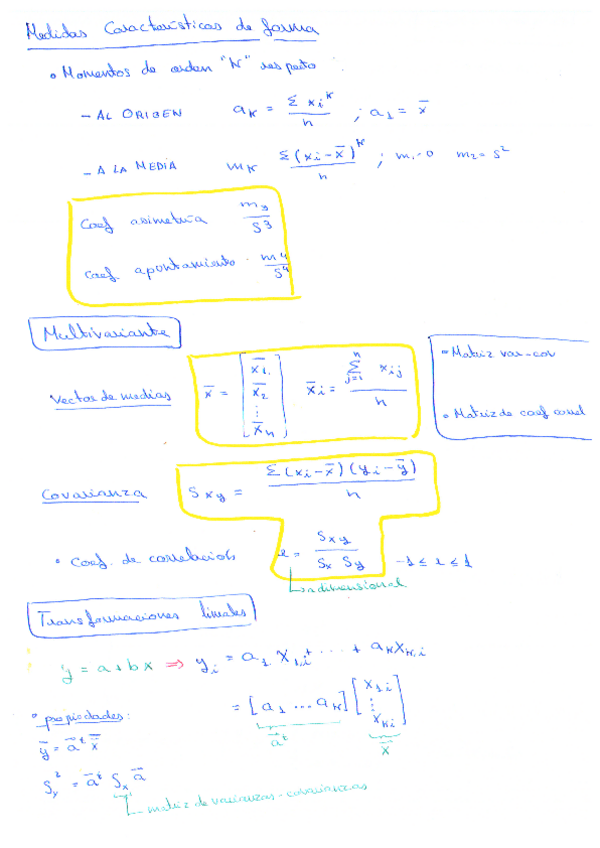 Medidas Características de forma
• Momentos de orden "K" respecto
- AL ORIGEN aK = Σ xi^K / n ; a1 = x̄
- A LA MEDIA mK Σ(xi - x̄)^K / n ; m1 = 0 m2 = s²
Coef asimetría m3 / S³
Coef. apuntamiento . m4 / S⁴
Multivariante
Vector de medias x̄ = [x̄1, x̄2 ⋮ x̄n] x̄i = Σ(j=1, n) xij / n
• Matriz var-cov
• Matriz de coef correl
Covarianza Sxy = Σ(xi - x̄)(yi - ȳ) / n
• Coef. de correlación r = Sxy / Sx Sy -1 ≤ r ≤ 1
adimensional
Transformaciones lineales
y = a + bx ⇒ yi = a1 X1,i + ... + aK XK,i
= [a1 ... aK] [X1i ⋮ XKi]
a^t x̄
• propiedades:
ȳ = a^t x̄
Sy² = a^t Sx a
matriz de varianzas-covarianzas